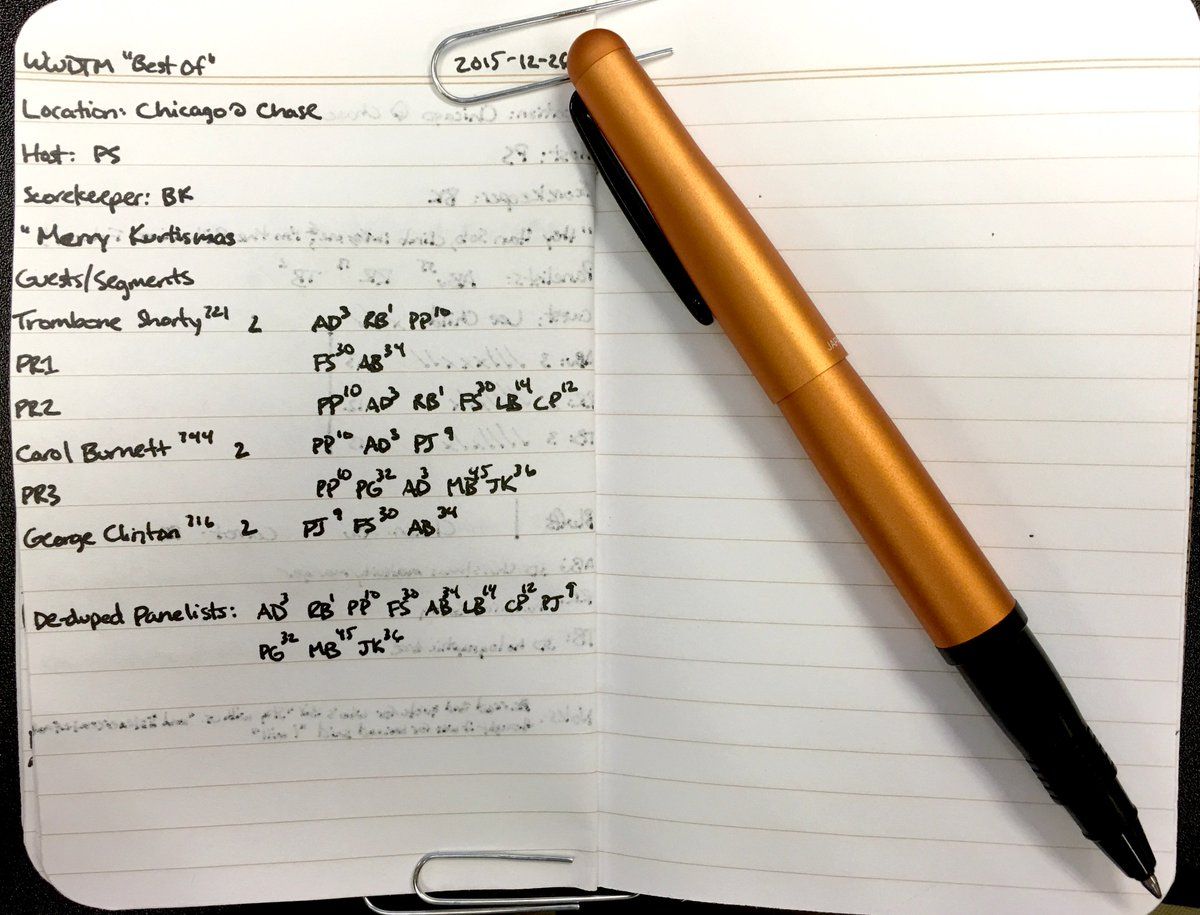 WWDTM "Best Of" 2015-12-26
Location: Chicago @ Chase
Host: PS
Scorekeeper: BK
"Merry Kurtismas
Guests/Segments
Trombone Shorty 721 2 AD3 RB1 PP10
PR1 FS30 AB34
PR2 PP10 AD3 RB1 FS30 LB14 CP12
Carol Burnett 744 2 PP10 AD3 PJ9
PR3 PP10 PG32 AD3 MB45 JK36
George Clinton 716 2 PJ9 FS30 AB34
De-duped Panelists: AD3 RB1 PP10 FS30 AB34 LB14 CP12 PJ9
PG32 MB45 JK36